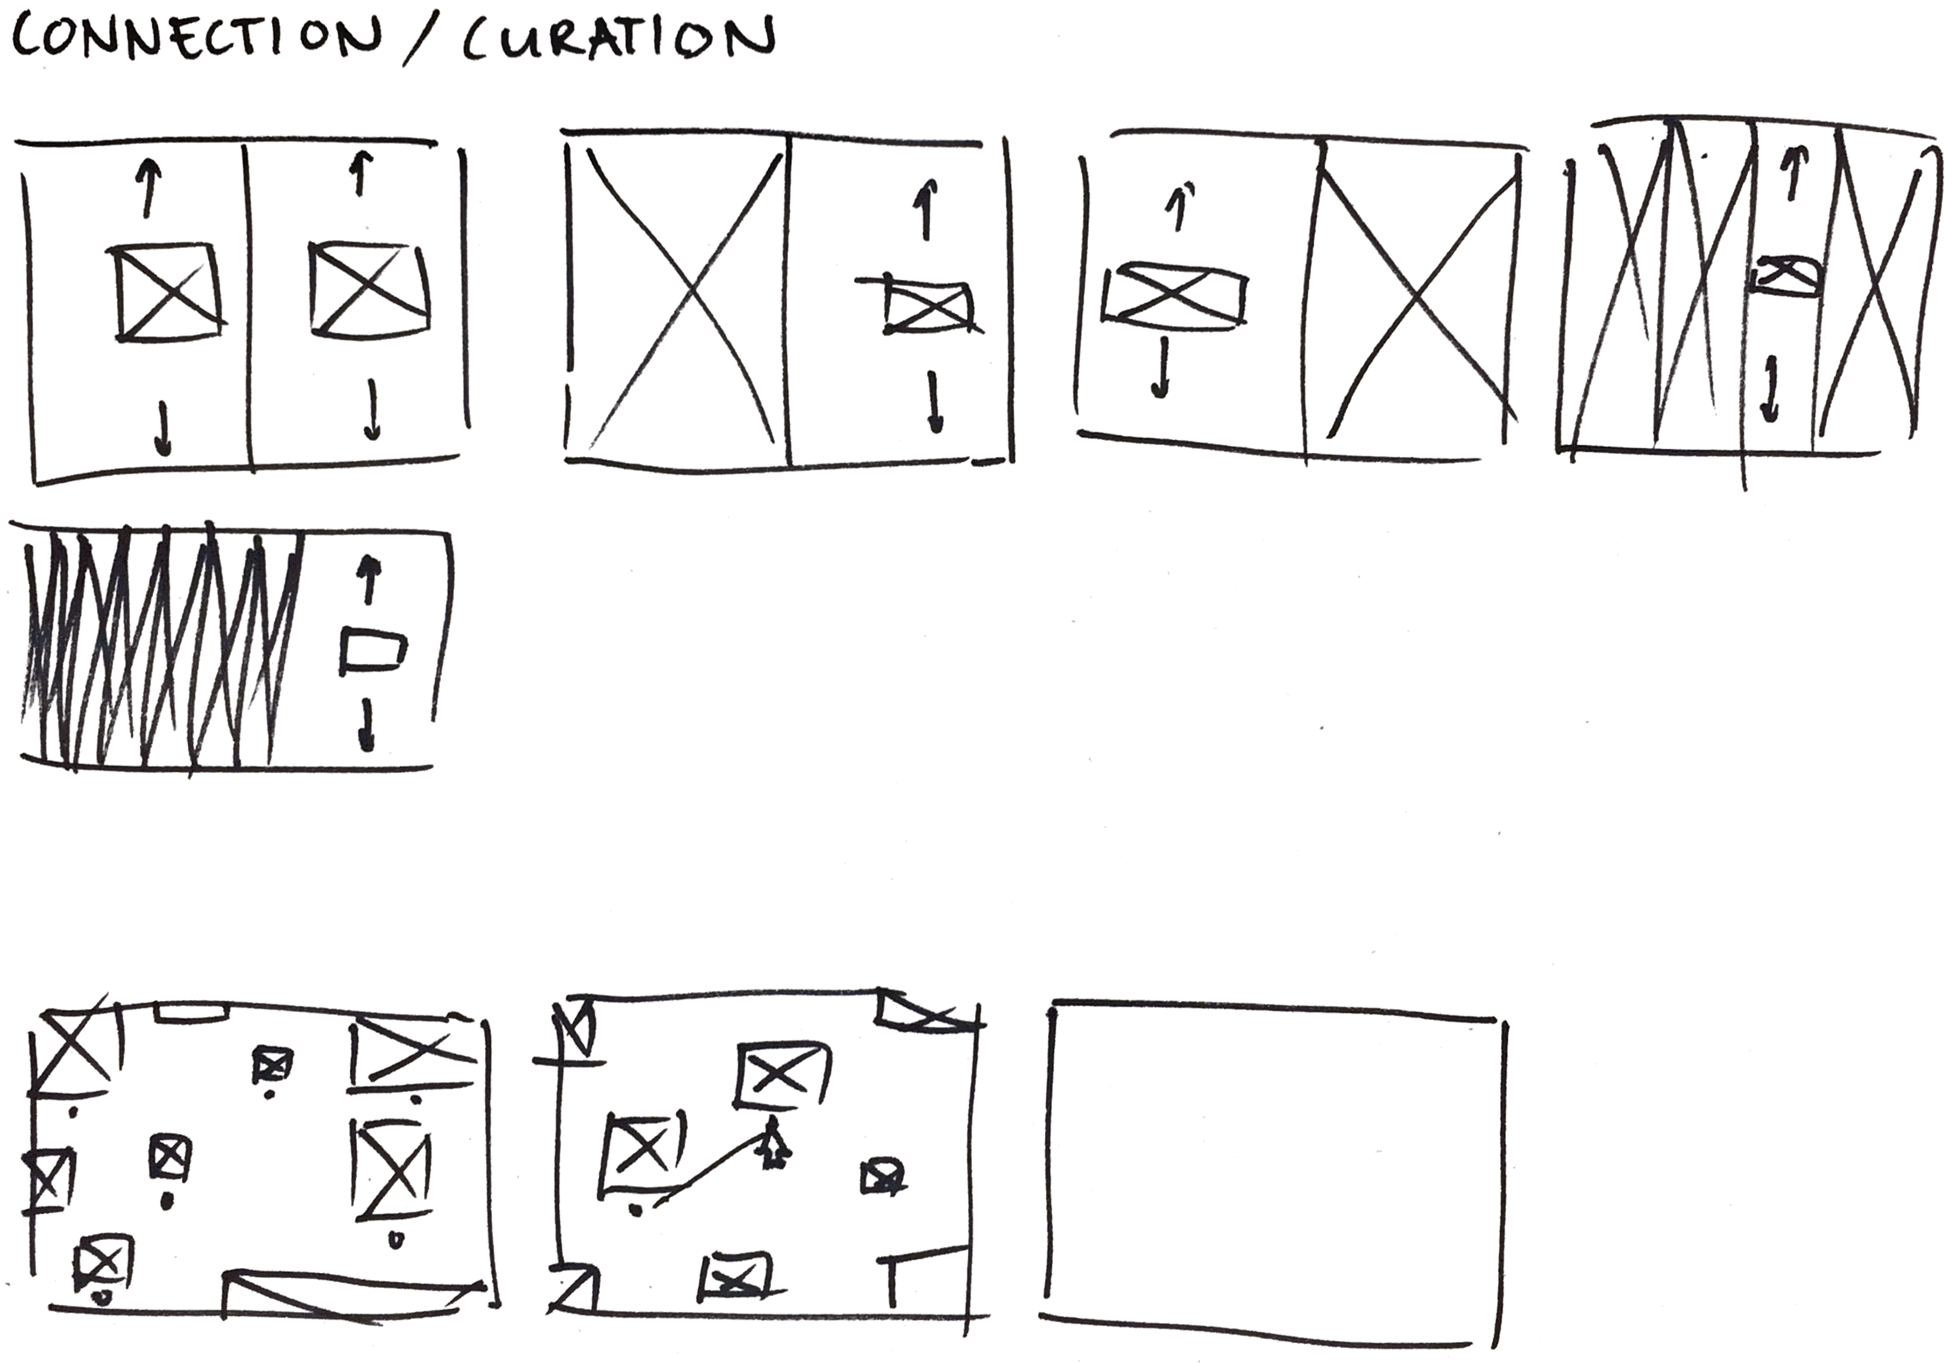 CONNECTION / CURATION